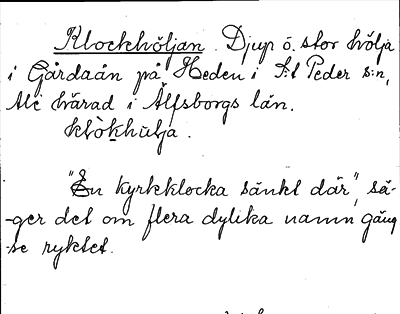 Klockhöljan. Djup o. stor hölja
i Gårdaån på Heden i S:t Peder s:n,
Ale härad i Älfsborgs län.
klòkhulja.
"En kyrkklocka sänkt där", sä-
-ger det om flera dylika namn gång-
-se ryktet.